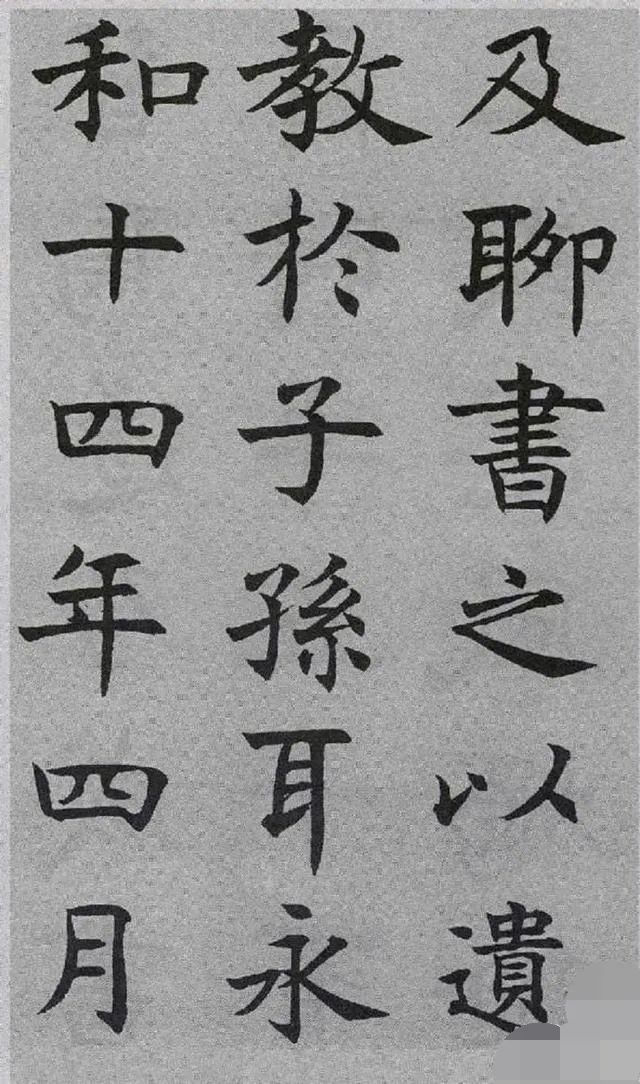 及聊書之以遺
教於子孫耳永
和十四年四月